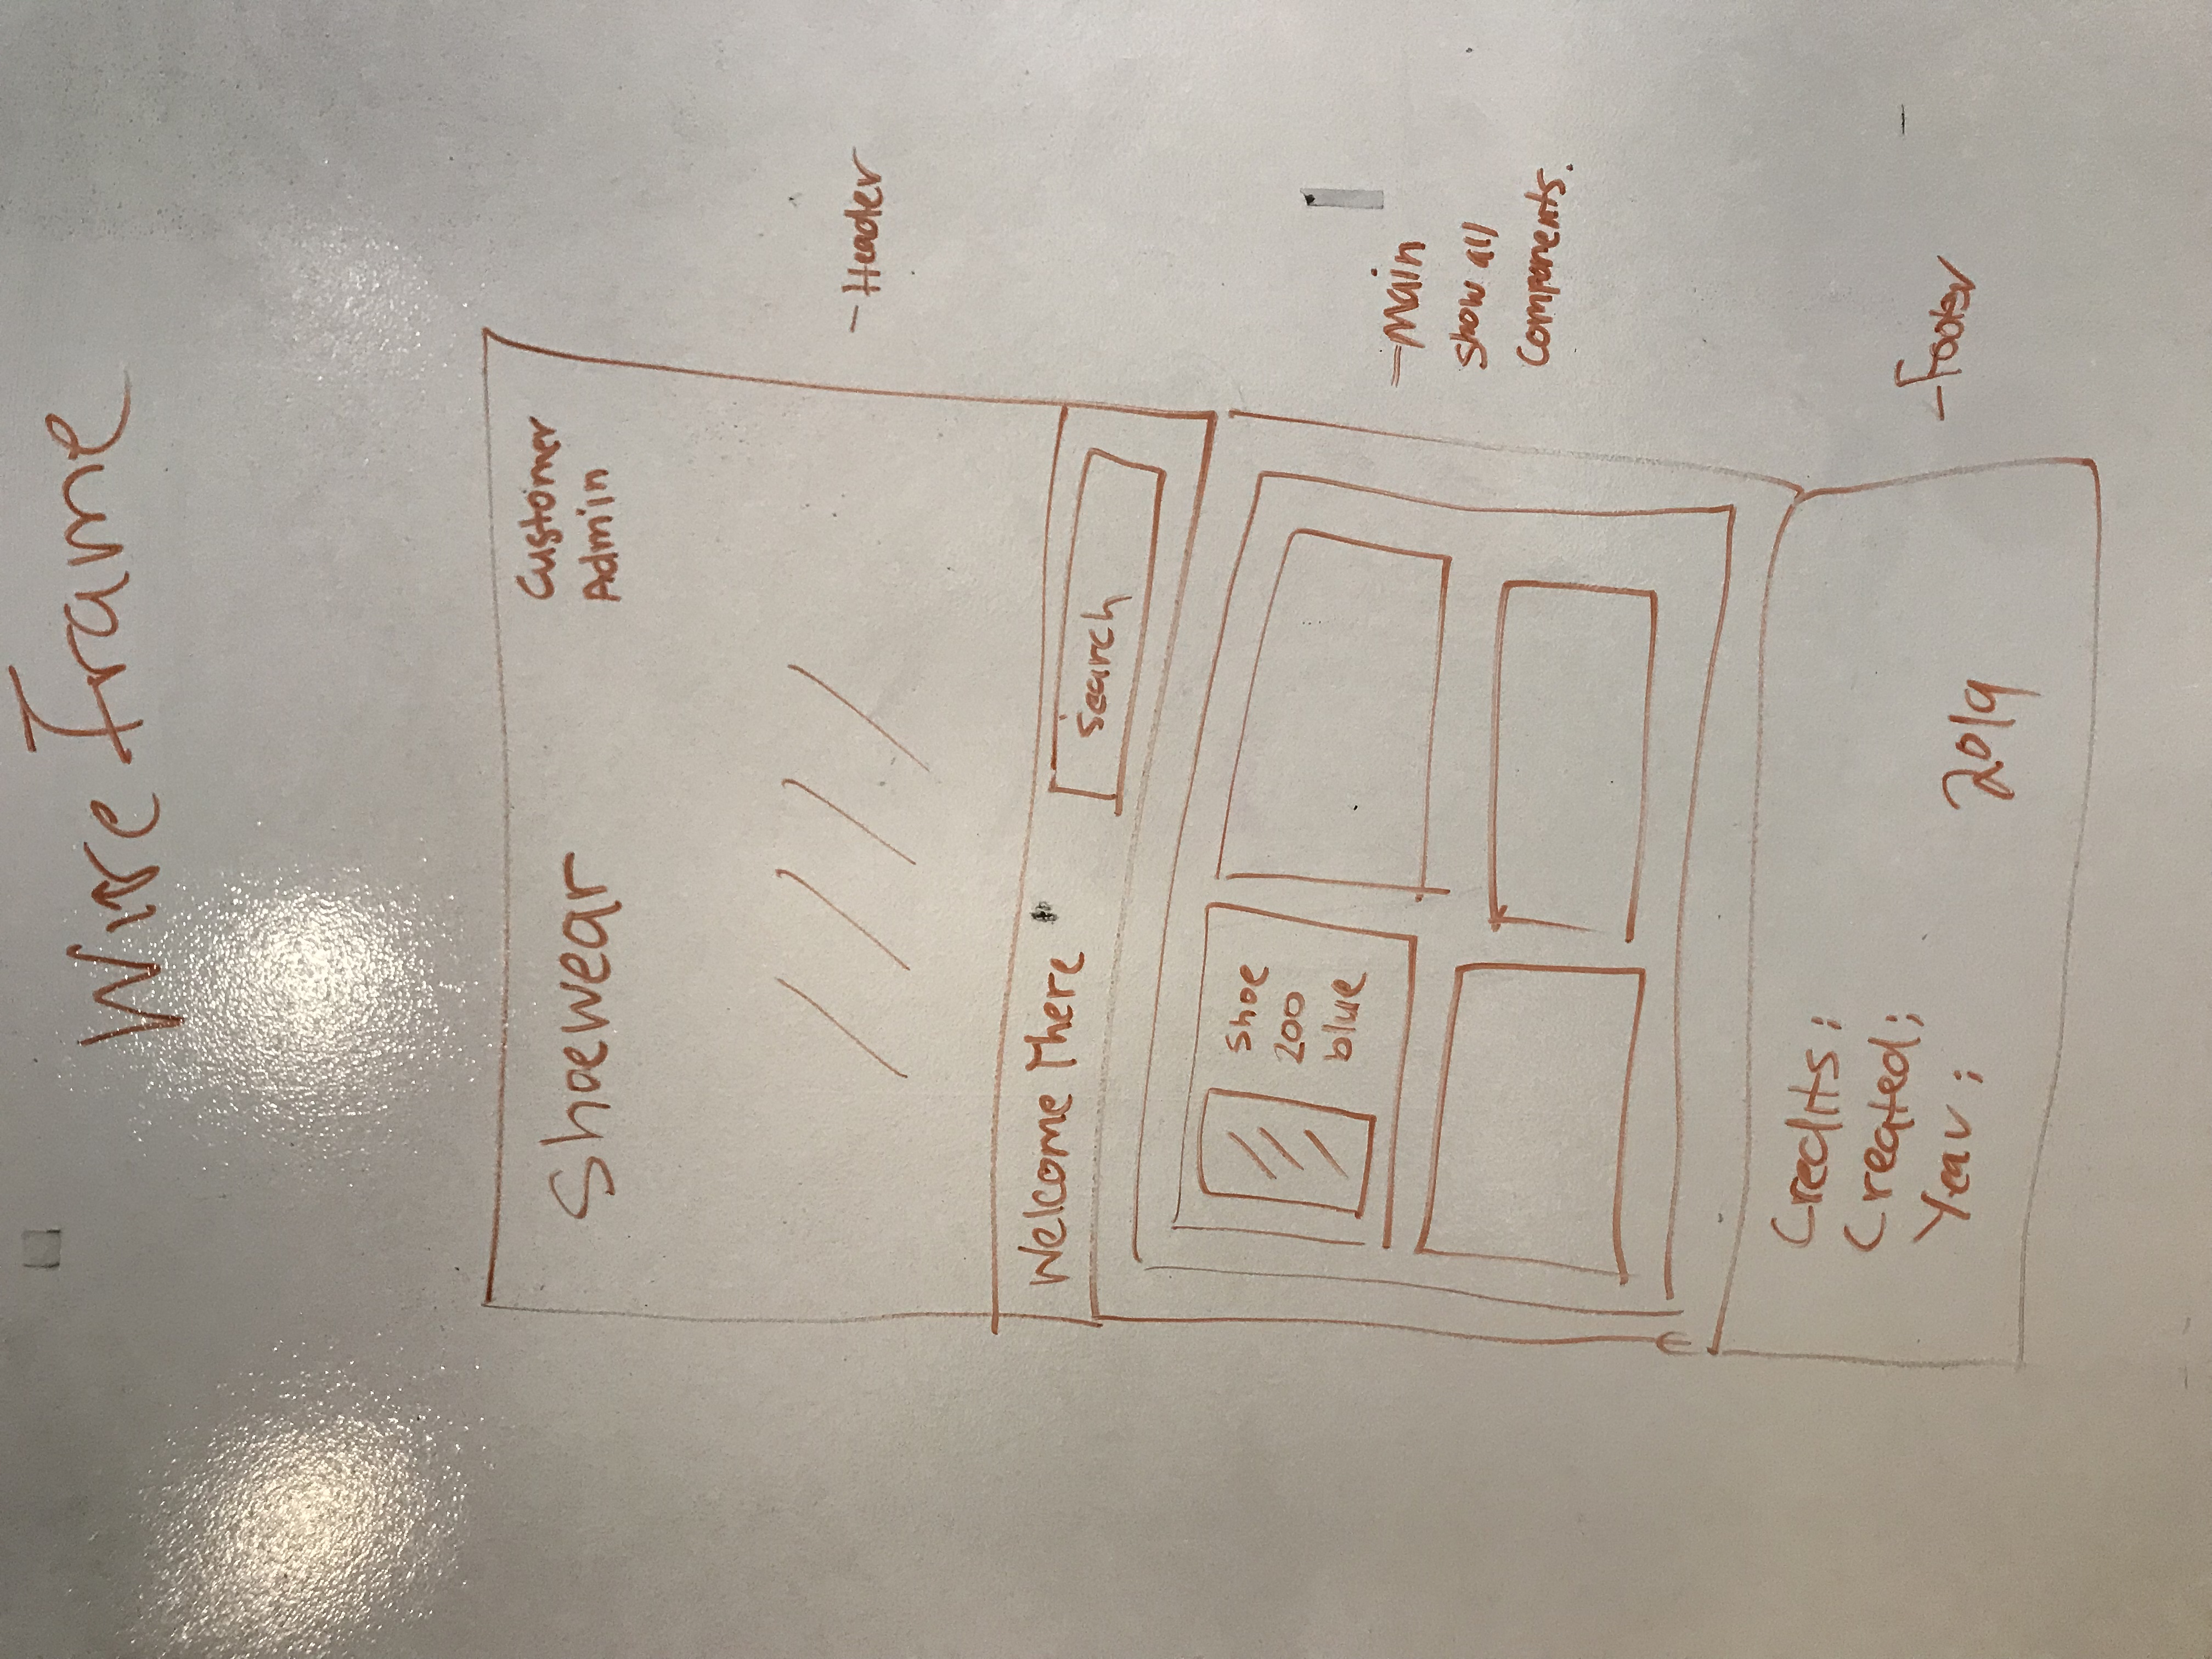 Wire Frame
Shoewear
Customer
Admin
- Header
Welcome There
Search
Shoe
200
blue
- Main
Show all
Components.
Credits:
Created:
Year:
2019
- Footer